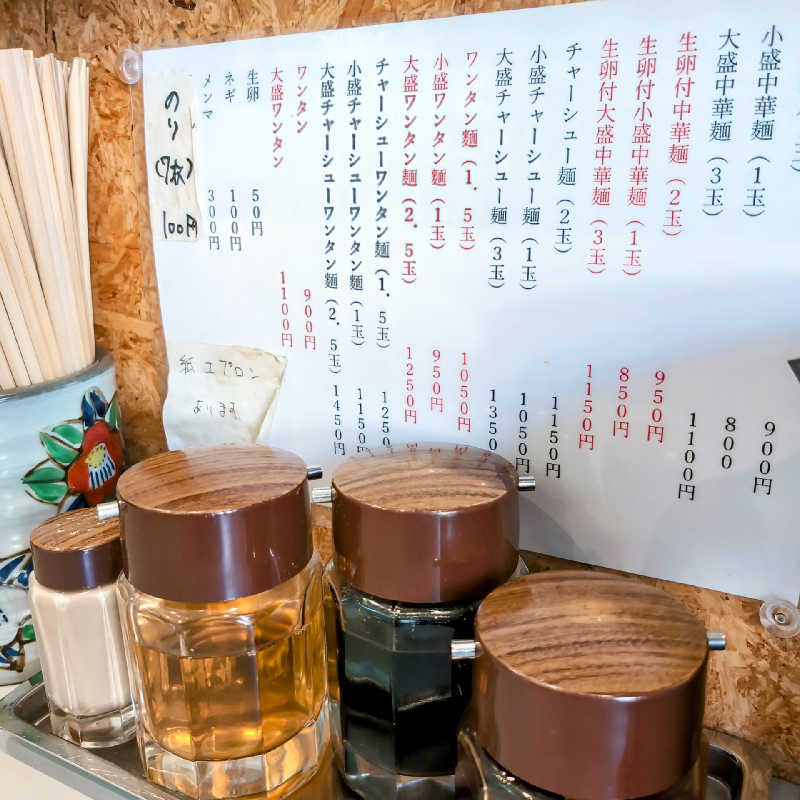 玉）　900円
小盛中華麺（1玉）　800
大盛中華麺（3玉）　1100円
生卵付中華麺（2玉）　950円
生卵付小盛中華麺（1玉）　850円
生卵付大盛中華麺（3玉）　1150円
チャーシュー麺（2玉）　1150円
小盛チャーシュー麺（1玉）　1050円
大盛チャーシュー麺（3玉）　1350円
ワンタン麺（1．5玉）　1050円
小盛ワンタン麺（1玉）　950円
大盛ワンタン麺（2．5玉）　1250円
チャーシューワンタン麺（1．5玉）　1250円
小盛チャーシューワンタン麺（1玉）　1150円
大盛チャーシューワンタン麺（2．5玉）　1450円
ワンタン　900円
大盛ワンタン　1100円
生卵　50円
ネギ　100円
メンマ　300円
のり
(7枚)
100円
紙エプロン
あります